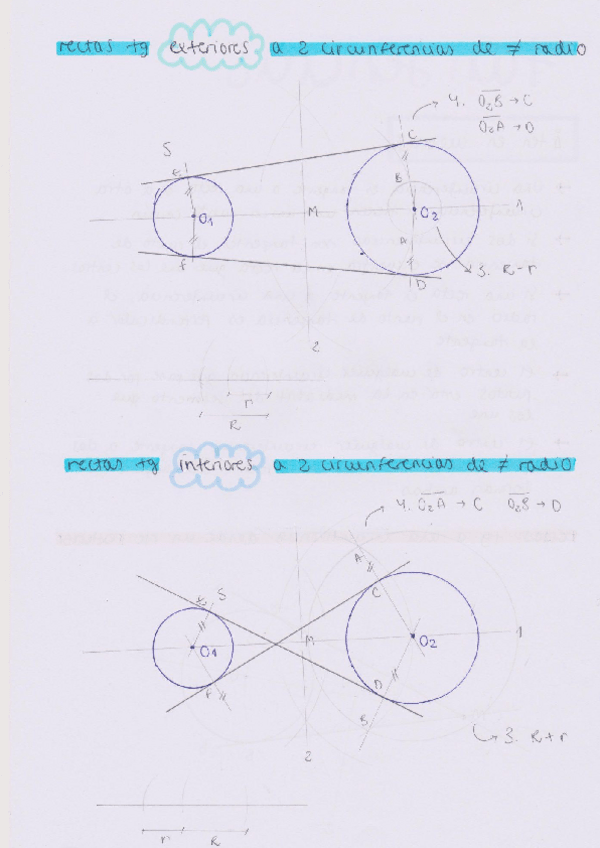 rectas tg exteriores a 2 circunferencias de ≠ radio
4. O₂B → C
O₂A → D
S
C
E
B
O1
M
O2
1
A
F
3. R-r
D
2
r
R
rectas tg interiores a 2 circunferencias de ≠ radio
4. O₂A → C O₂B → D
A
E
S
C
O1
M
O2
1
F
D
B
3. R+r
2
r
R